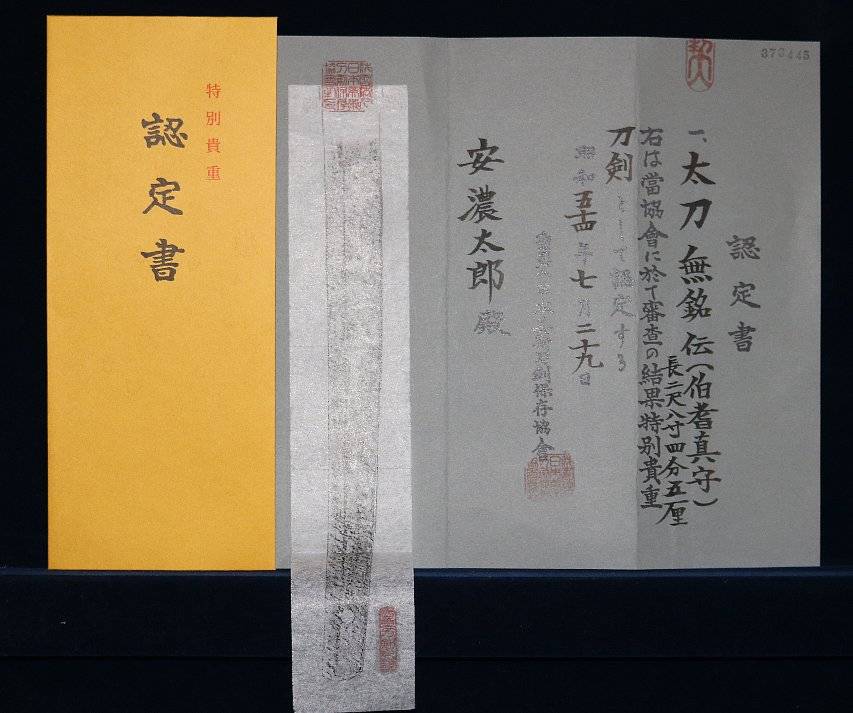 特別貴重
認定書
373445
認定書
一、太刀 無銘 伝(伯耆真守)
長二尺八寸四分五厘
右は當協會に於て審査の結果特別貴重
刀剣として認定する
昭和五十四年七月二十九日
財團法人日本美術刀剣保存協會
安濃太郎殿